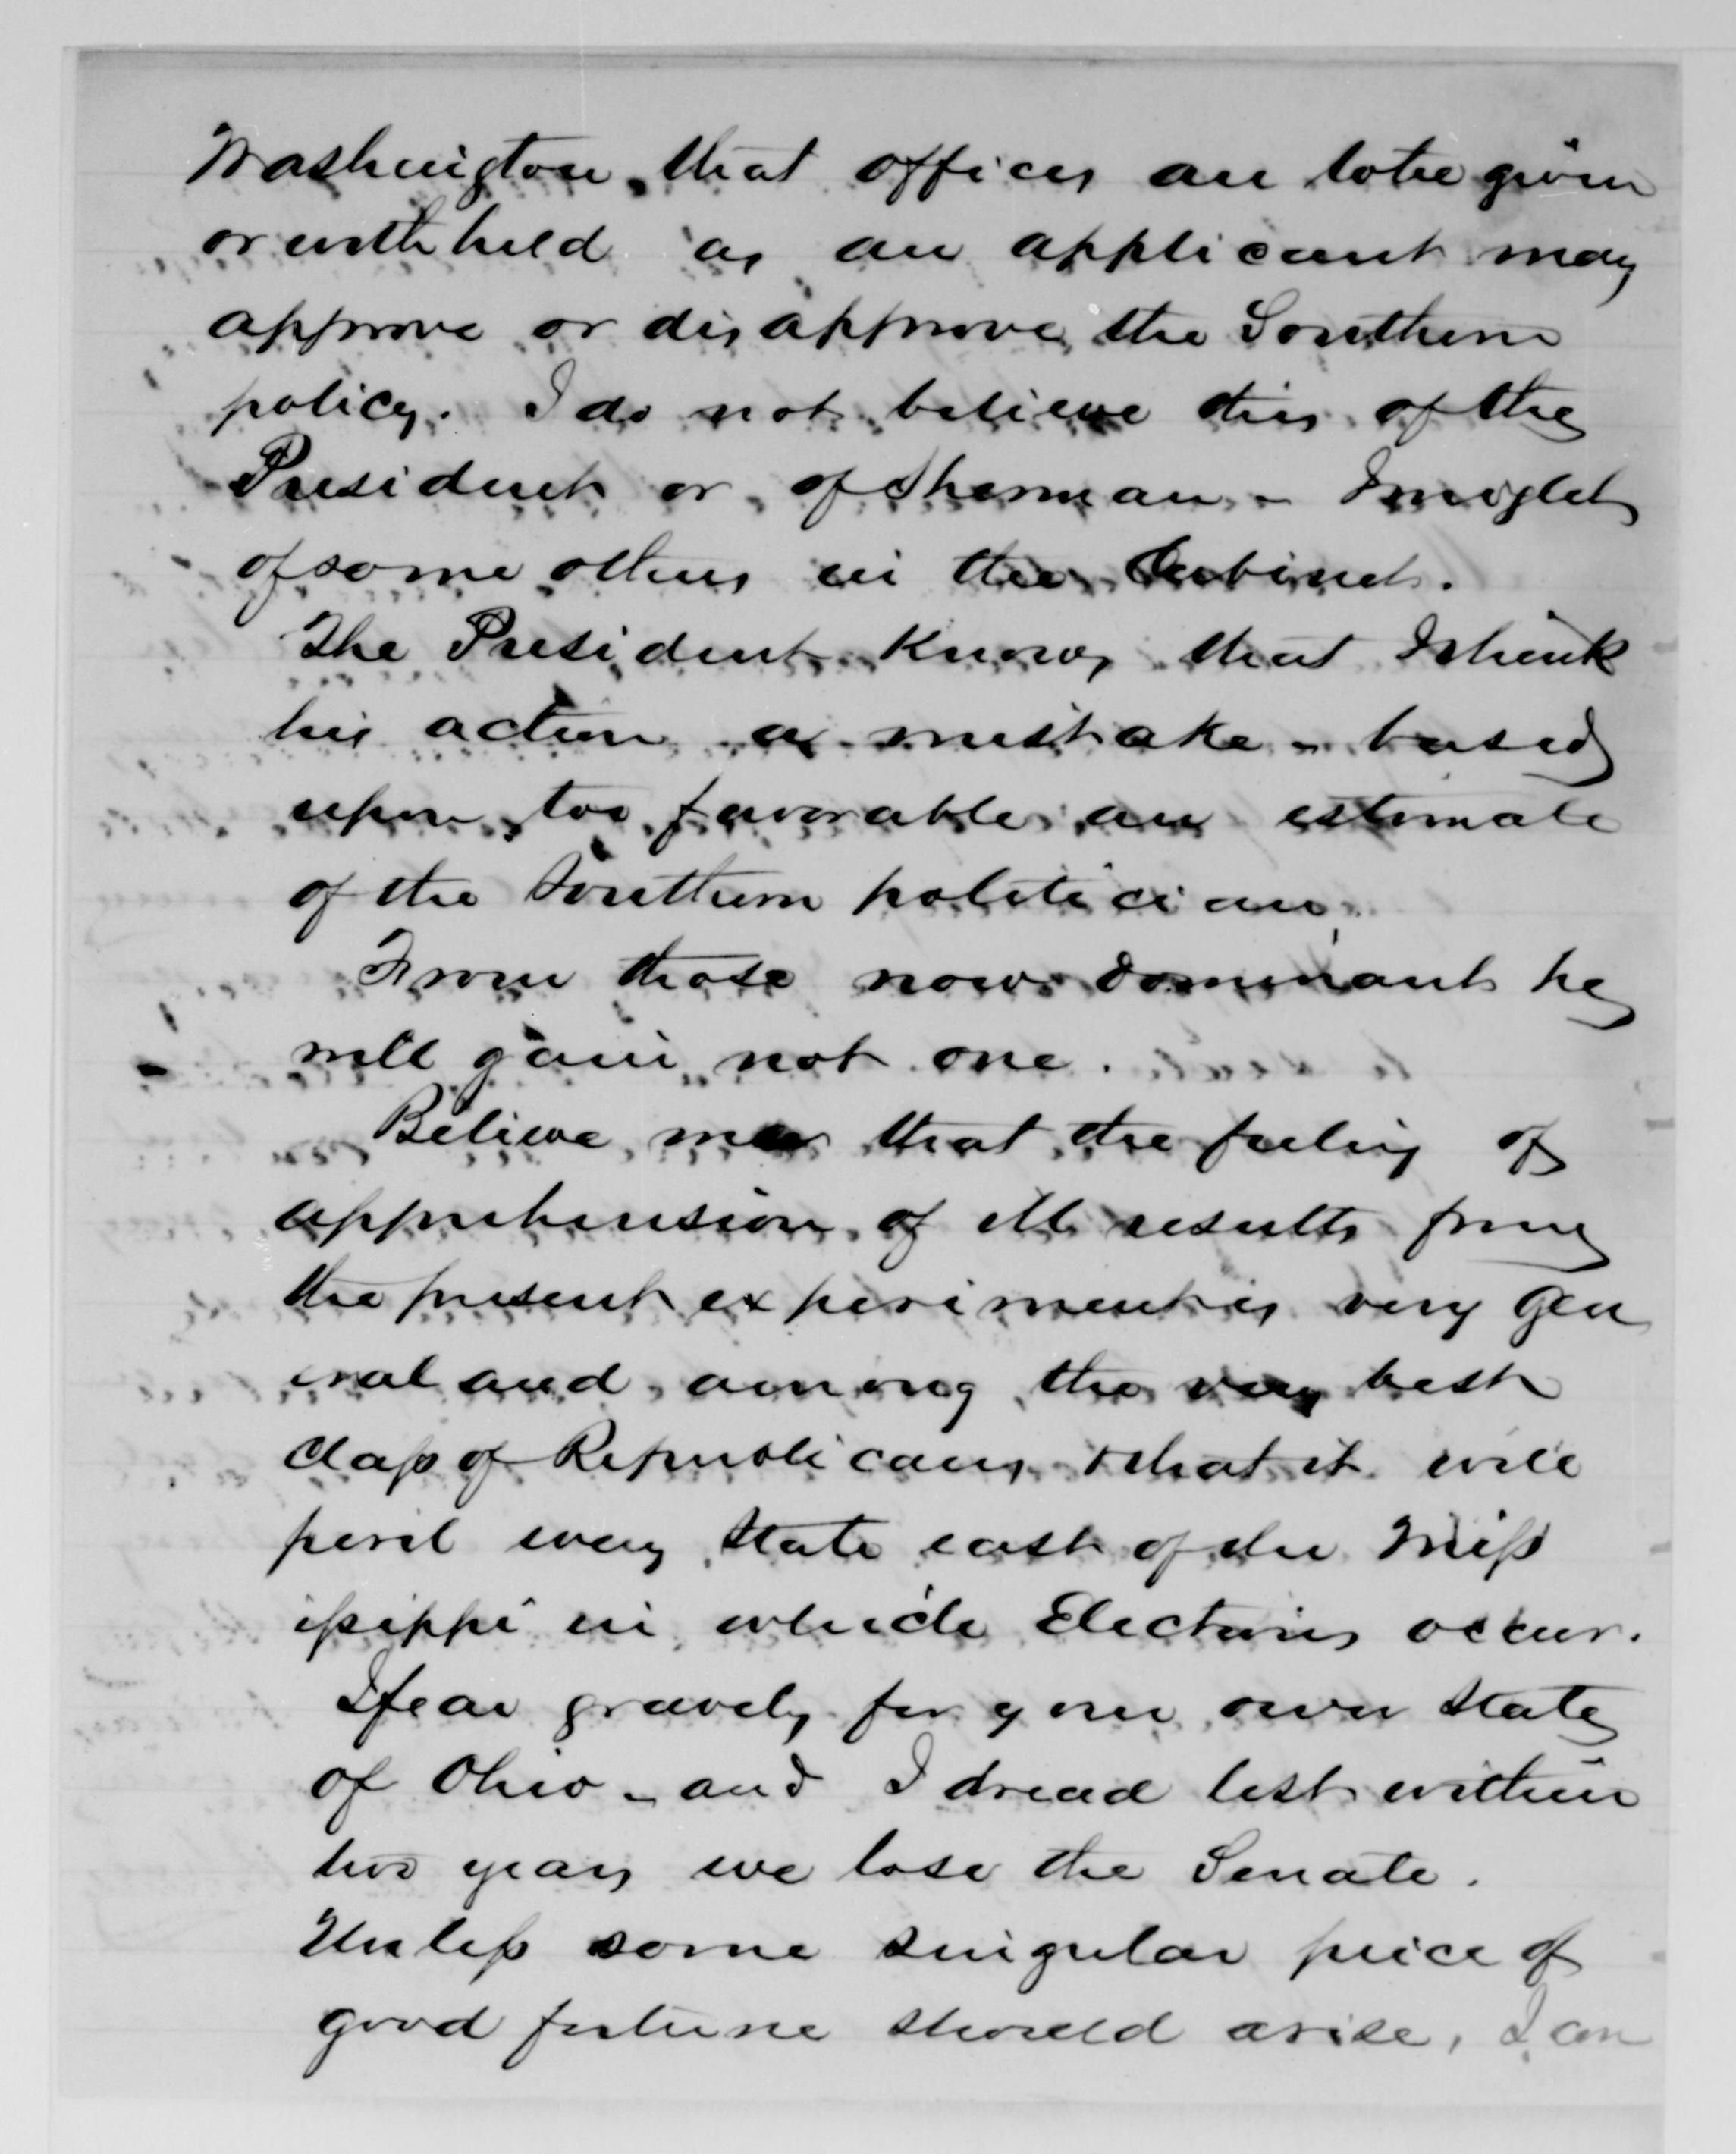 Washington that offices are to be given
or withheld as an applicant may
approve or disapprove the Southern
policy. I do not believe this of the
President or of Sherman - I might
of some others in the Cabinet.
The President knows that I think
his action a mistake - based
upon too favorable an estimate
of the Southern politician.
From those now dominant he
will gain not one.
Believe me that the feeling of
apprehension of ill results from
the present experiment is very gen
eral and among the very best
class of Republicans & that it will
peril every State east of the Miss
issippi in which Elections occur.
I fear gravely for your own State
of Ohio - and I dread lest within
two years we lose the Senate.
Unless some singular piece of
good fortune should arise, I am